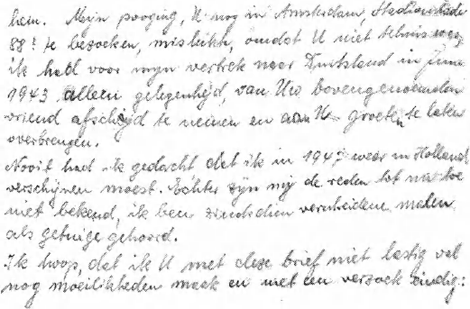 hem. Mijn poging, U nog in Amsterdam, Stadionkade
88? te bezoeken, mislukte, omdat U niet thuis was,
ik had voor mijn vertrek naar Duitsland in juni
1943 alleen gelegenheid, van Uw bovengenoemden
vriend afscheid te nemen en aan U groeten te laten
overbrengen.
Nooit had ik gedacht dat ik in 194 weer in Holland
verschijnen moest. Echter zijn mij de reden tot nu toe
niet bekend, ik ben sindsdien verscheidene malen
als getuige gehoord.
Ik hoop, dat ik U met deze brief niet lastig val
nog moeilikheden maak en met een verzoek eindig: